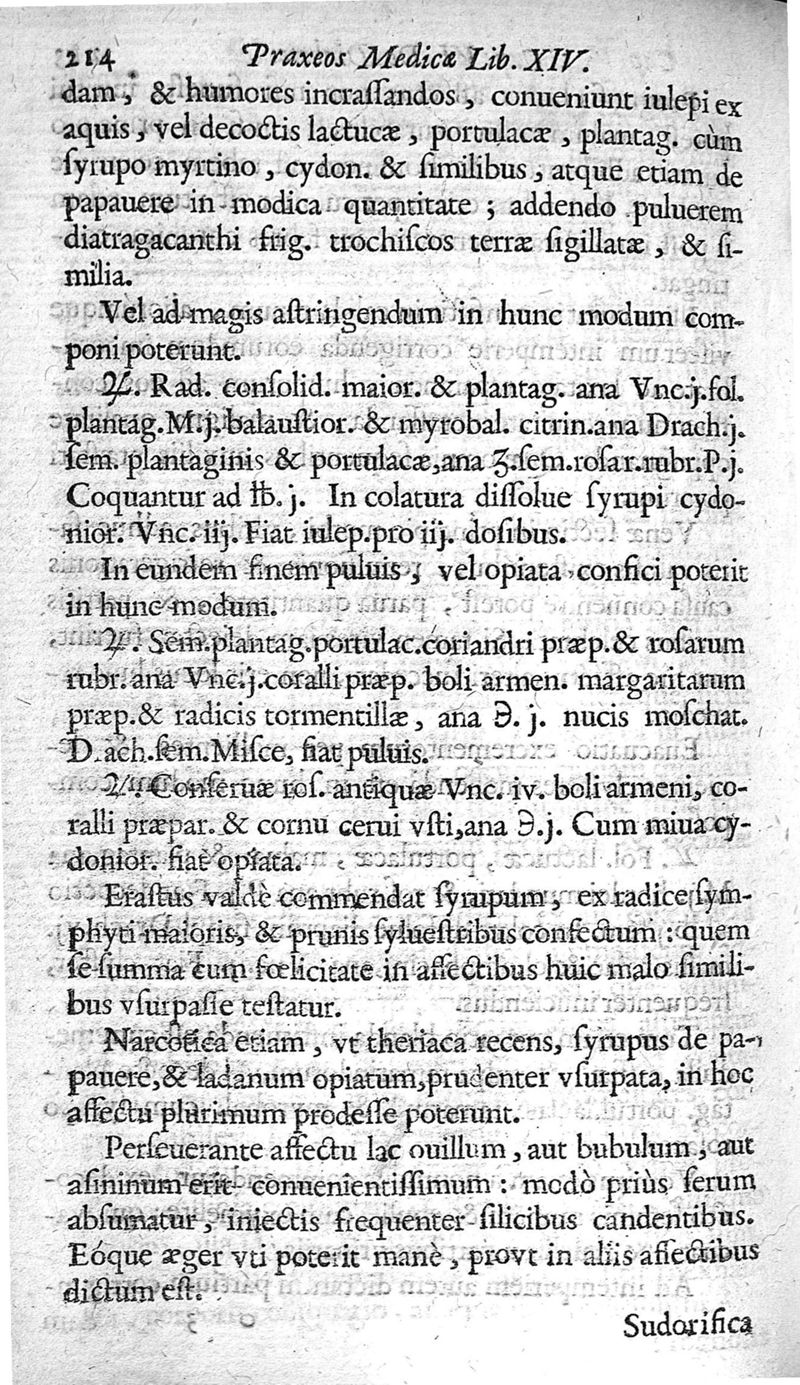 214 Praxeos Medicæ Lib. XIV.
dam, & humores incraſſandos, conueniunt iulepi ex
aquis, vel decoctis lactucæ, portulacæ, plantag. cùm
ſyrupo myrtino, cydon. & ſimilibus, atque etiam de
papauere in modica quantitate; addendo puluerem
diatragacanthi frig. trochiſcos terræ ſigillatæ, & ſi-
milia.
Vel ad magis aſtringendum in hunc modum com-
poni poterunt.
♃. Rad. conſolid. maior. & plantag. ana Vnc.j.fol.
plantag.M.j.balauſtior. & myrobal. citrin.ana Drach.j.
ſem. plantaginis & portulacæ,ana ʒ.ſem.roſar.rubr.P.j.
Coquantur ad ℔. j. In colatura diſſolue ſyrupi cydo-
nior. Vnc. iij. Fiat iulep.pro iij. doſibus.
In eundem finem puluis, vel opiata confici poterit
in hunc modum.
♃. Sem.plantag.portulac.coriandri præp.& roſarum
rubr. ana Vnc.j.coralli præp. boli armen. margaritarum
præp.& radicis tormentillæ, ana ℈. j. nucis moſchat.
D.ach.ſem.Miſce, fiat puluis.
♃. Conſeruæ roſ. antiquæ Vnc. iv. boli armeni, co-
ralli præpar. & cornu cerui vſti,ana ℈.j. Cum miua cy-
donior. fiat opiata.
Eraſtus valdè commendat ſyrupum, ex radice ſym-
phyti maioris, & prunis ſylueſtribus confectum: quem
ſe ſumma cum fœlicitate in affectibus huic malo ſimili-
bus vſurpaſſe teſtatur.
Narcotica etiam, vt theriaca recens, ſyrupus de pa-
pauere,& ladanum opiatum,prudenter vſurpata, in hoc
affectu plurimum prodeſſe poterunt.
Perſeuerante affectu lac ouillum, aut bubulum, aut
aſininum erit conuenientiſſimum: modò priùs ſerum
abſumatur, iniectis frequenter ſilicibus candentibus.
Eóque æger vti poterit manè, provt in aliis affectibus
dictum eſt.
Sudorifica